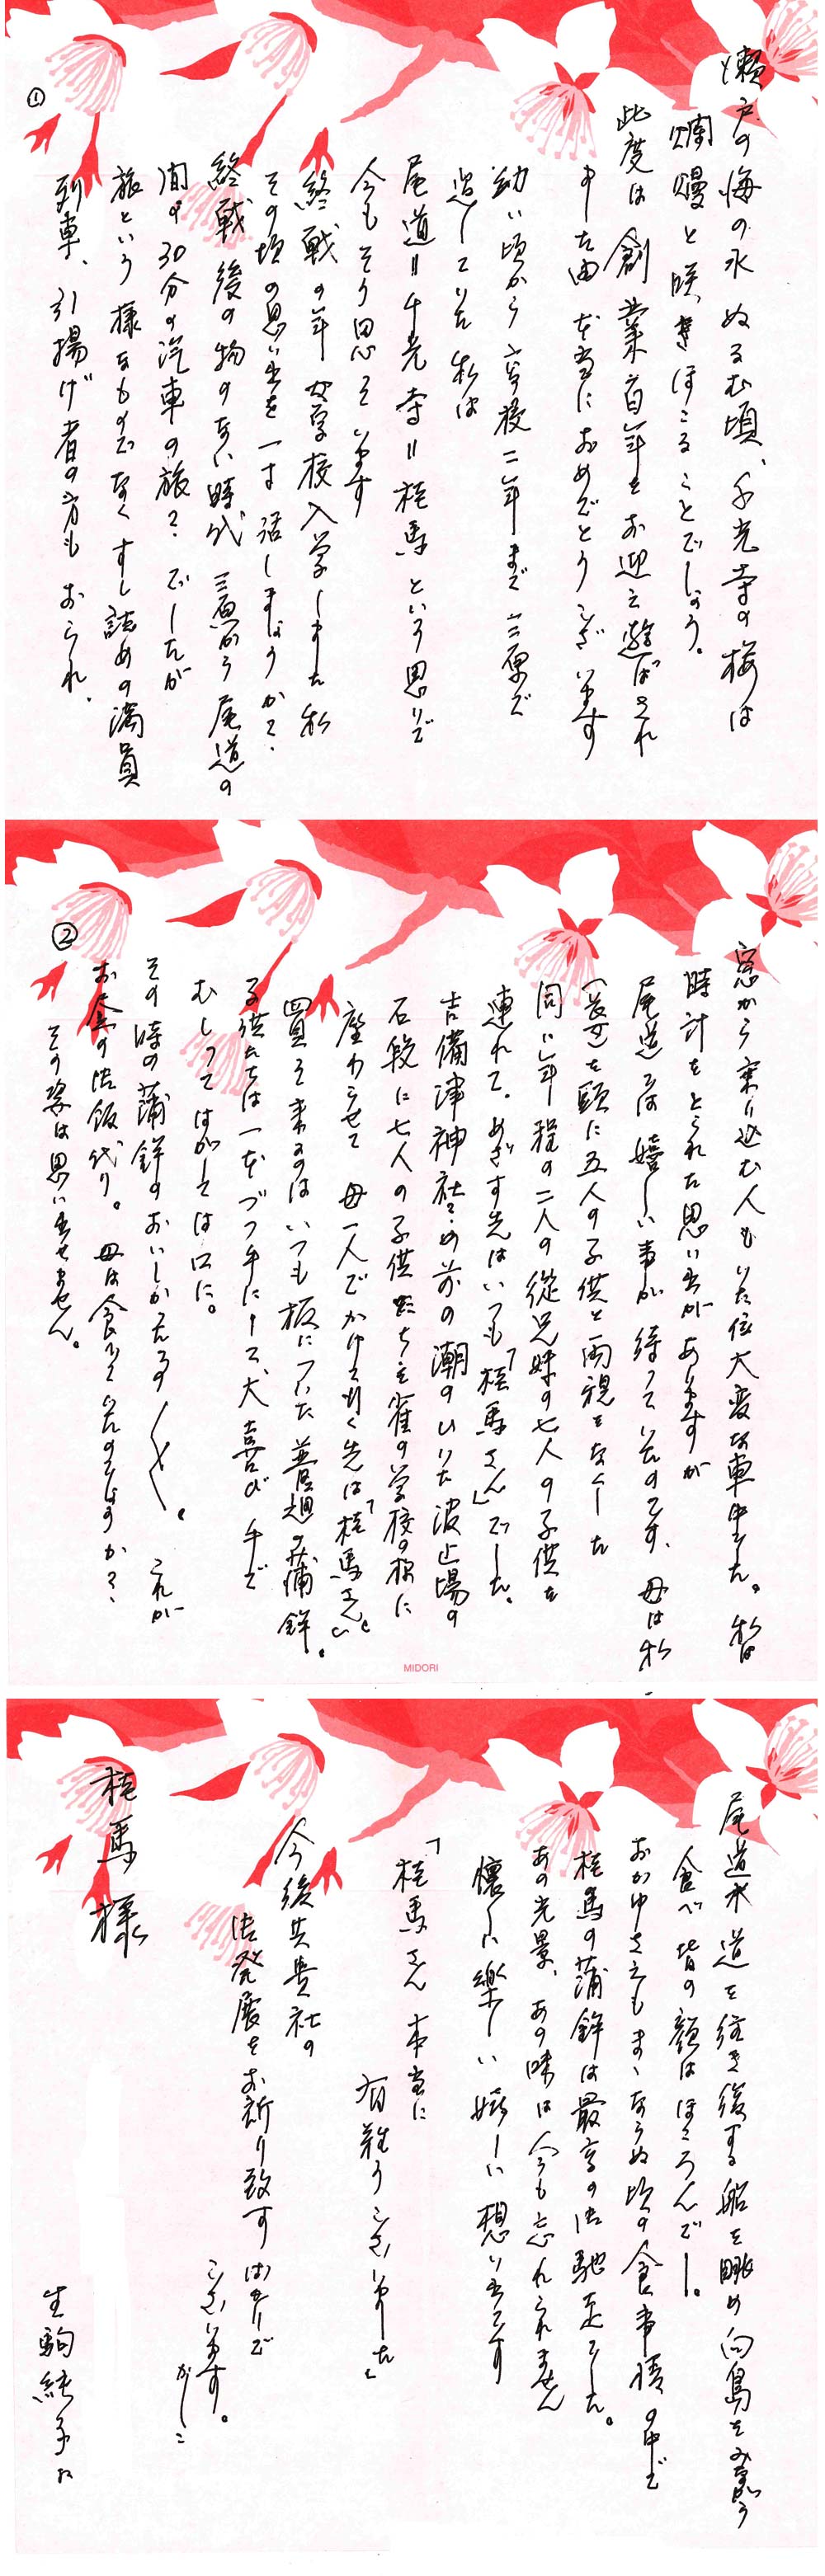 瀬戸の海の水ぬるむ頃、千光寺の桜は
爛熳と咲きほこることでしょう。
此度は創業百年をお迎え遊ばされ
ました由 本当におめでとうございます
幼い頃から高校二年まで三原で
過していた私は
尾道=千光寺=桂馬という思いで
今もそう思っています
終戦の年 女学校入学しました私
その頃の思い出を一寸話しましょうかネ.
終戦後の物のない時代 三原から尾道の
間の30分の汽車の旅?でしたが
旅という様なものでなくすし詰めの満員
列車、引揚げ者の方もおられ、
①
窓から乗り込む人もいた位大変な車中でした。 私は
時計をとられた思い出がありますが
尾道では嬉しい事が待っていたのです、母は私
(長女)を頭に五人の子供と両親をなくした
同い年程の二人の従兄妹の七人の子供を
連れて。めざす先はいつも「桂馬さん」でした。
吉備津神社?の前の潮のひいた波止場の
石段に七人の子供たちを雀の学校の様に
座わらせて 母一人でかけて行く先は「桂馬さん」
買って来るのはいつも板についた普通の蒲鉾。
子供たちは一本づつ手にして、大喜び 手で
むしってはがしては口に。
その時の蒲鉾のおいしかったの〱。 これが
お昼の御飯代り。 母は食べていたのでせうか?、
その姿は思い出せません。
②
MIDORI
尾道水道を往き復する船を眺め向島をみながら
食べ皆の顔はほころんで〳〵。
おかゆさえもまゝならぬ頃の食事情の中で
桂馬の蒲鉾は最高の御馳走でした。
あの光景、あの味は今も忘れられません
懐しい楽しい嬉しい想い出です
「桂馬さん 本当に
有難うございました」
今後共貴社の
御発展をお祈り致すばかりで
ございます。
かしこ
桂馬様
生駒純子